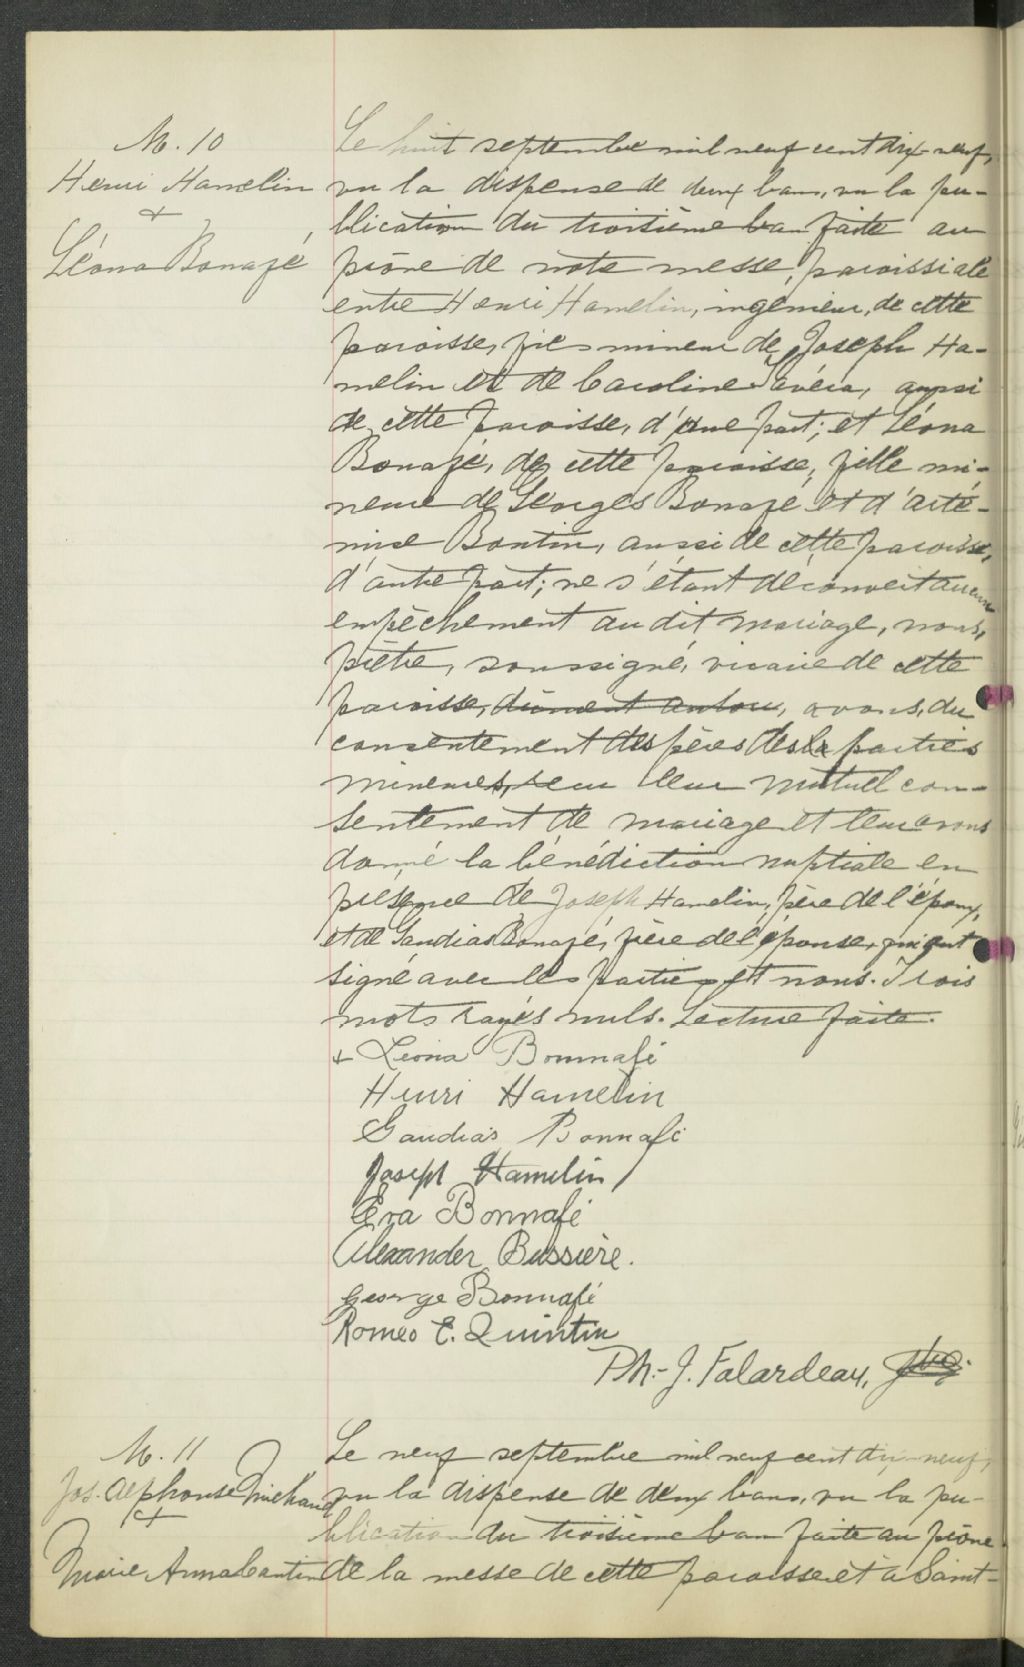 M. 10
Henri Hamelin
+
Léona Bonafé
Le huit septembre mil neuf cent dix-neuf,
vu la dispense de deux bans, vu la pu-
blication du troisième ban faite au
prône de notre messe, paroissiale
entre Henri Hamelin, ingénieur, de cette
paroisse, fils mineur de Joseph Ha-
melin et de Caroline Savéra, aussi
de cette paroisse, d'une part; et Léona
Bonafé, de cette paroisse, fille mi-
neure de Georges Bonafé et d'Arté-
mise Boutin, aussi de cette paroisse,
d'autre part; ne s'étant découvert aucun
empêchement au dit mariage, nous,
prêtre, soussigné, vicaire de cette
paroisse, dûment autori, avons, du
consentement des pères des parties
mineures, reçu leur mutuel con-
sentement de mariage et leur avons
donné la bénédiction nuptiale en
présence de Joseph Hamelin, père de l'époux,
et de Gaudias Bonafé, frère de l'épouse, qui ont
signé avec les parties et nous. Trois
mots rayés nuls. Lecture faite.
+ Léona Bonnafé
Henri Hamelin
Gaudias Bonnafé
Joseph Hamelin
Eva Bonnafé
Alexander Bussière.
George Bonnafé
Romeo E. Quintin
Ph.-J. Falardeau,
M. 11
Jos. Alphonse Michaud
+
Marie Anna Cantin
Le neuf septembre mil neuf cent dix-neuf,
vu la dispense de deux bans, vu la pu-
blication du troisième ban faite au prône
de la messe de cette paroisse et à Saint-